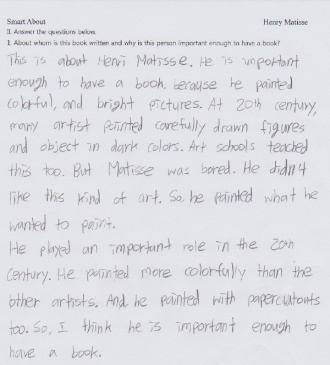 Smart About Henry Matisse
II. Answer the questions below.
1. About whom is this book written and why is this person important enough to have a book?
This is about Henri Matisse. He is important
enough to have a book. because he painted
colorful, and bright pictures. At 20th century,
many artist painted carefully drawn figures
and object in dark colors. Art schools teached
this too. But Matisse was bored. He didn't
like this kind of art. So, he painted what he
wanted to paint.
He played an important role in the 20th
Century. He painted more colorfully than the
other artists. And he painted with papercutouts
too. So, I think he is important enough to
have a book.